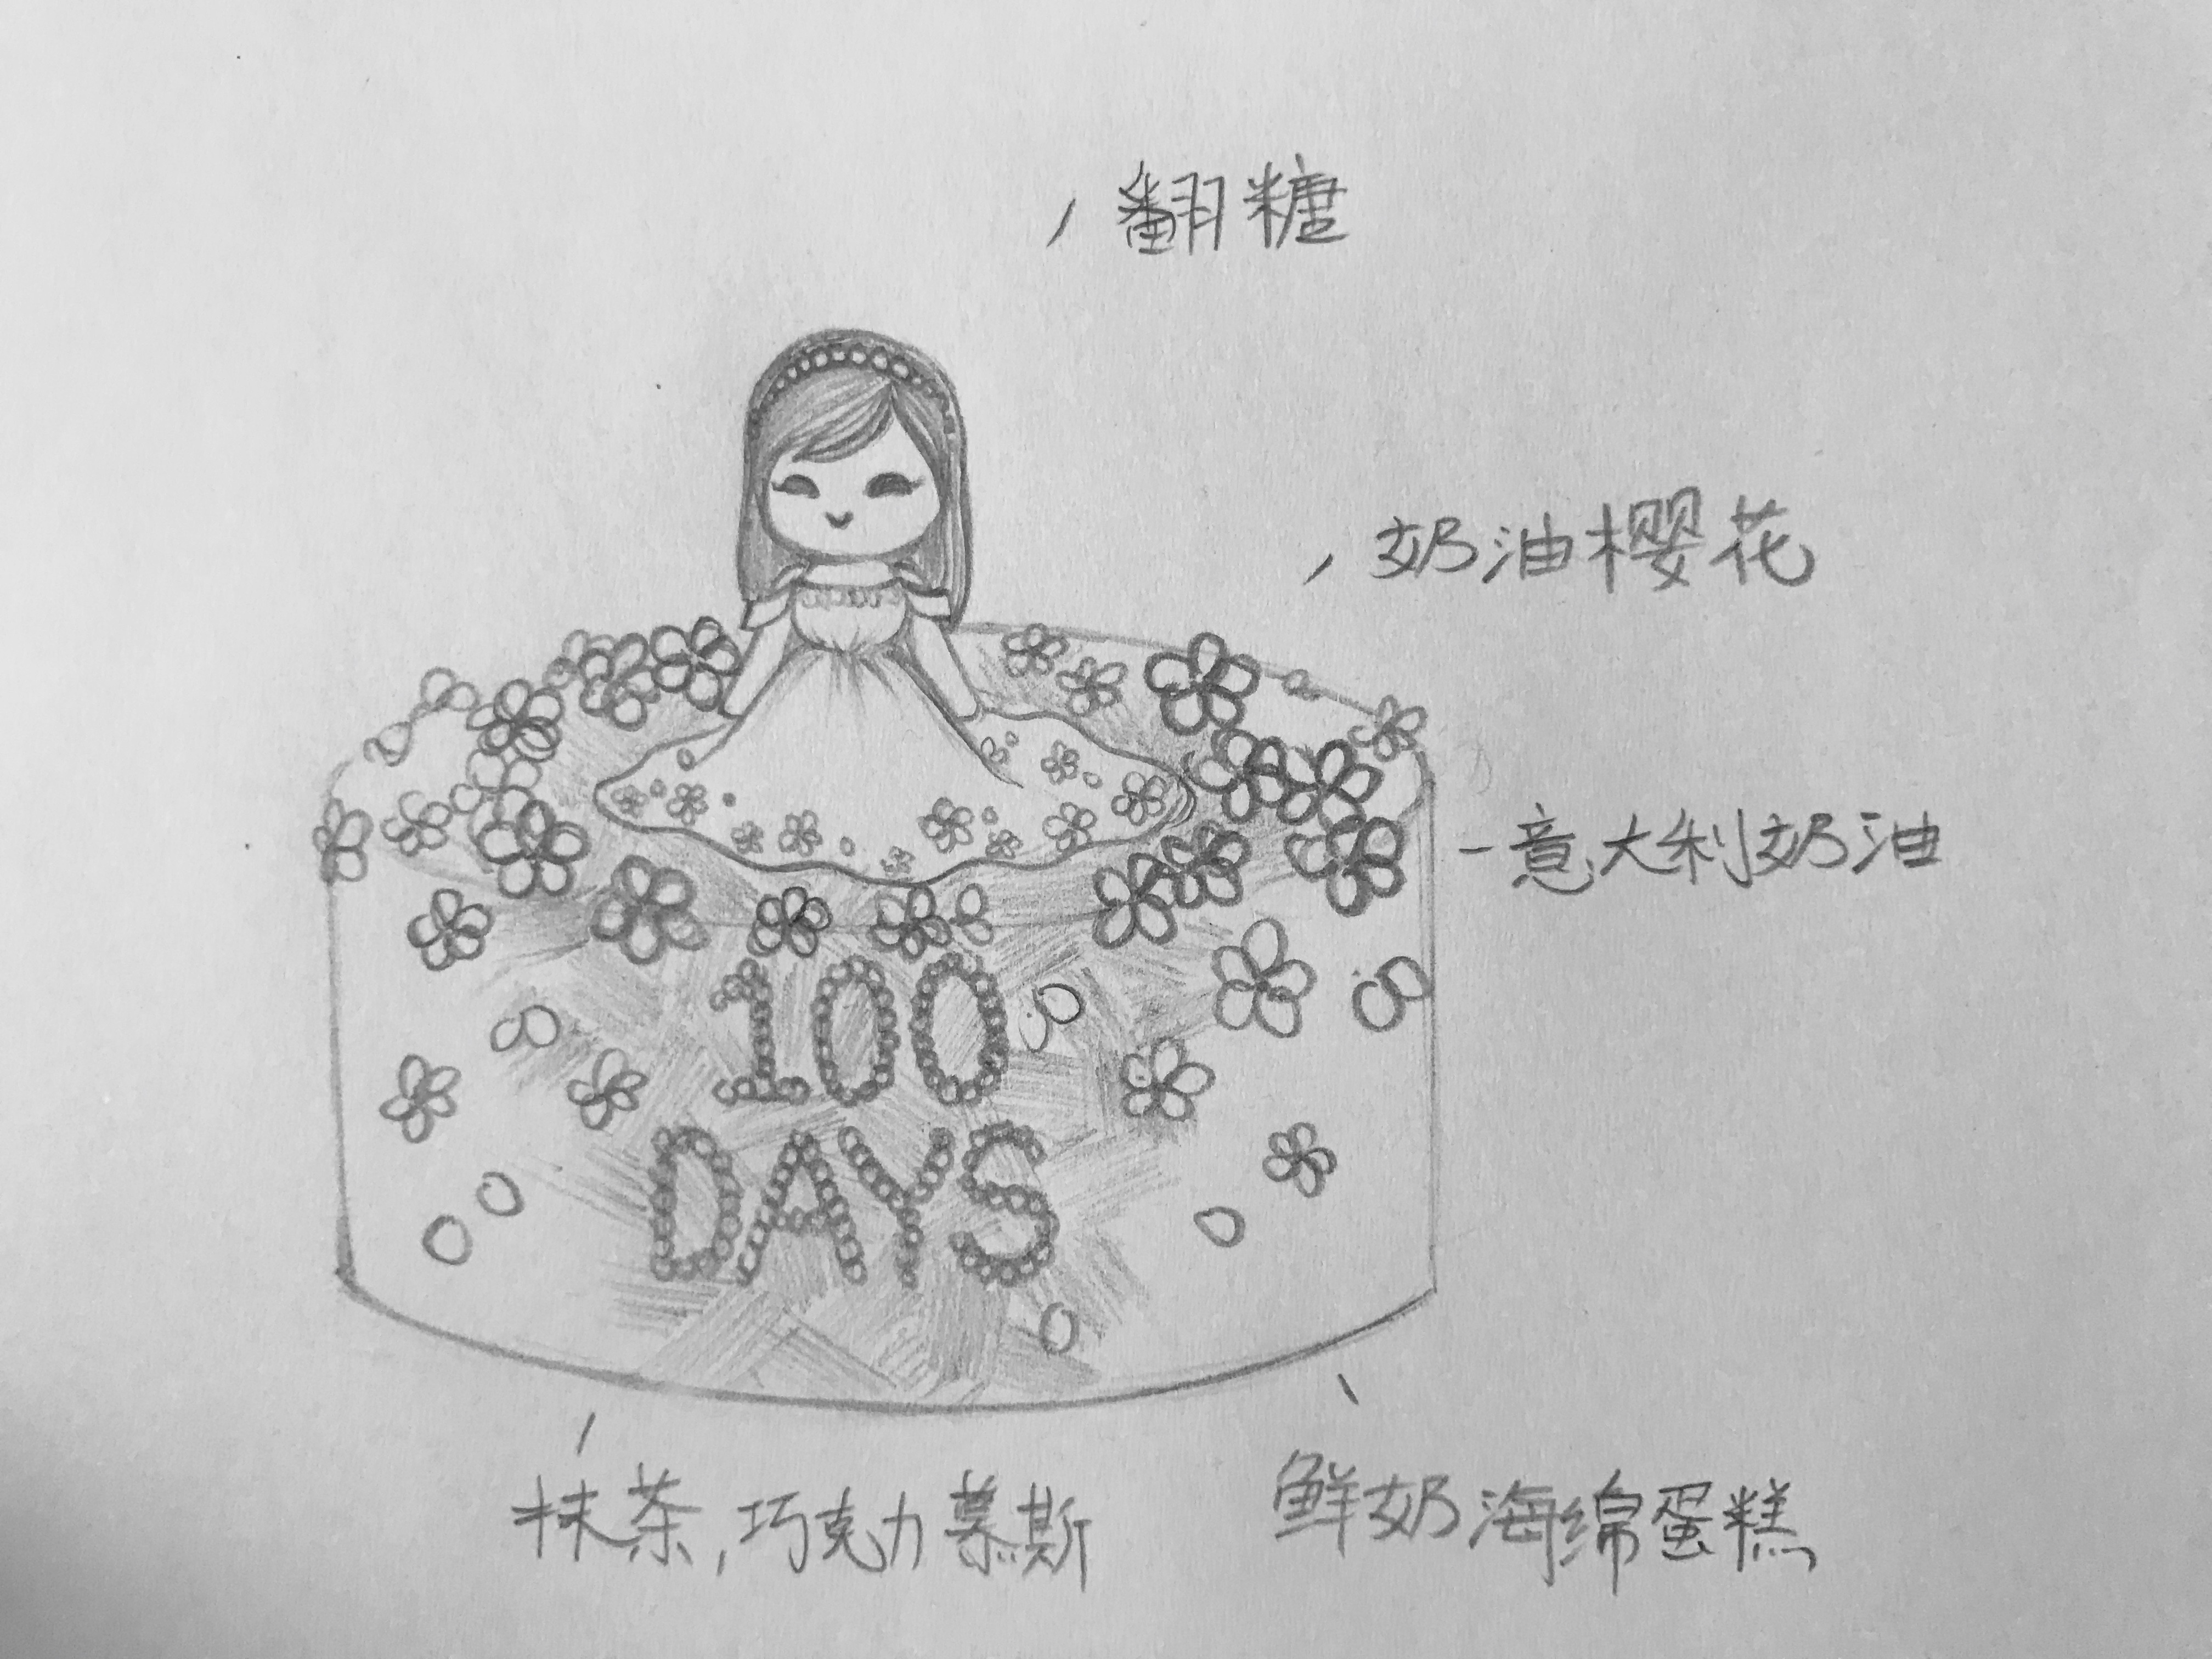 翻糖
奶油樱花
意大利奶油
100
DAYS
抹茶,巧克力慕斯
鲜奶海绵蛋糕